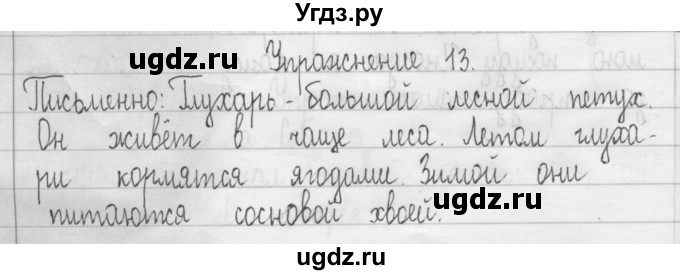 Угдз.ру
ugdz.ru ugdz.ru
Упражнение 13.
Письменно: Глухарь - большой лесной петух.
Он живёт в чаще леса. Летом глуха-
ри кормятся ягодами. Зимой они
ugdz.ru
питаются сосновой хвоей.
ugdz.ru